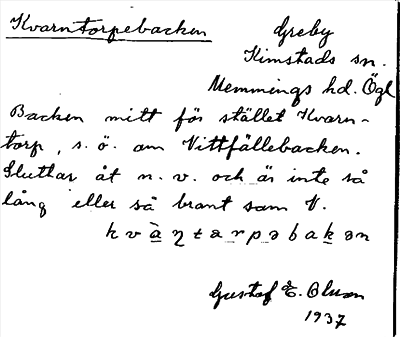 Kvarntorpebacken
Greby
Kimstads sn.
Memmings hd. Ögl
Backen mitt för stället Kvarn-
torp, s. ö. om Vittfällebacken.
Sluttar åt n. v. och är inte så
lång eller så brant som V.
Gustaf E.
1937